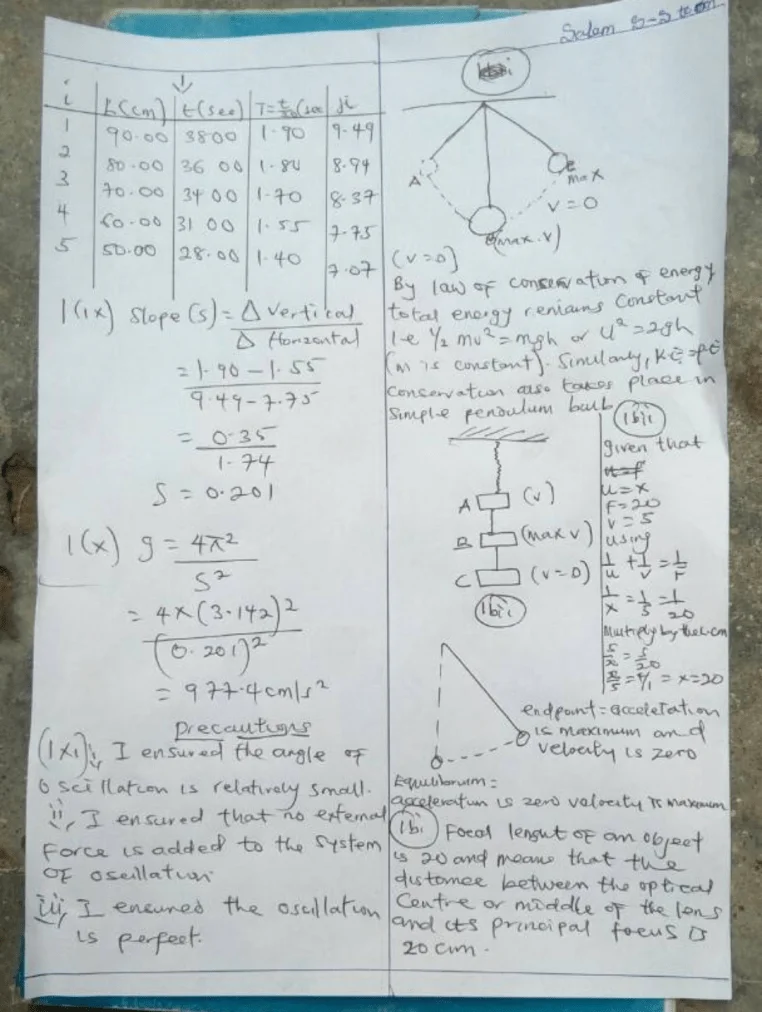 Salam
i | L(cm) | t(sec) | T=t/20(sec | √i
1 | 90.00 | 3800 | 1.90 | 9.49
2 | 80.00 | 36 00 | 1.84 | 8.94
3 | 70.00 | 34 00 | 1.70 | 8.37
4 | 60.00 | 31 00 | 1.55 | 7.75
5 | 50.00 | 28.00 | 1.40 | 7.07
1(ix) Slope (s) = Δ Vertical
Δ Horizontal
= 1.90 - 1.55
9.49 - 7.75
= 0.35
1.74
S = 0.201
1(x) g = 4π²
S²
= 4x(3.142)²
(0.201)²
= 977.4cm/s²
Precautions
(1xi) i, I ensured the angle of
Oscillation is relatively small.
ii, I ensured that no external
Force is added to the system
OF oscillation.
iii, I ensured the oscillation
is perfect.
A
max
V = 0
(max.v)
(v=0)
By law of conservation of energy
total energy remains Constant
I-e ½ mv² = mgh or U² = 2gh
(m is constant). Similarly, K.E = PE
Conservation also takes place in
Simple pendulum bulb
A (v)
B (max v)
C (v=0)
1bii
1bii
given that
u=x
F=20
v=5
using
1/u + 1/v = 1/F
1/x = 1/5 = 1/20
Multiply by the L.cm
5/x = 5/20
x/5 = 4/1 = x=20
endpoint = acceleration
is maximum and
velocity is zero
Equilibrium =
acceleration is zero velocity is maximum
1bi Focal lenght of an object
is 20 and means that the
distance between the optical
Centre or middle of the lens
and its principal focus is
20cm.